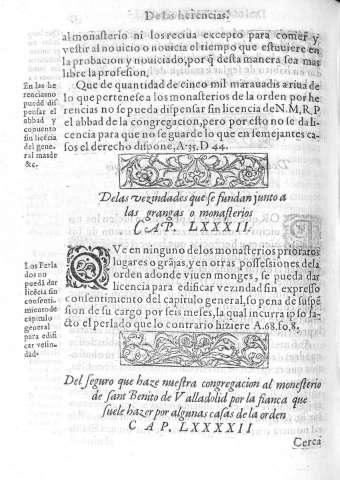 De las herencias.
al monasterio ni los reciua excepto para comer y
vestir al nouicio o nouicia el tiempo que estuuiere en
la probacion y nouiciado, por q̃ desta manera sea mas
libre la profesion.
En las he
rencias no
pueda dis
pensar el
abbad y
conuento
sin licēcia
del gene-
ral mas de
&c.
Que de quantidad de cinco mil marauadis arriua de
lo que pertenesce a los monasterios de la orden por he
rencias no se pueda dispensar sin licencia de N.M.R.P
el abbad de la congregacion, pero por esto no se da li-
cencia para que no se guarde lo que en semejantes ca-
sos el derecho dispone, A.35. D 44.
De las vezindades que se fundan junto a
las grangas o monasterios
CAP. LXXXII.
Los Perla
dos no
puedā dar
licēcia sin
consenti-
miento de
capitulo
general
para edifi
car vezin-
dad.
QVe en ninguno de los monasterios prioratos
lugares o grājas, y en otras possessiones de la
orden adonde viuen monges, se pueda dar
licencia para edificar vezindad sin expresso
consentimiento del capitulo general, so pena de suspē
sion de su cargo por seis meses, la qual incurra ipso fa-
cto el perlado que lo contrario hiziere A.68. fo.8,
Del seguro que haze nuestra congregacion al monesterio
de sant Benito de Valladolid por la fiança que
suele hazer por algunas casas de la orden
CAP. LXXXXII
Cerca